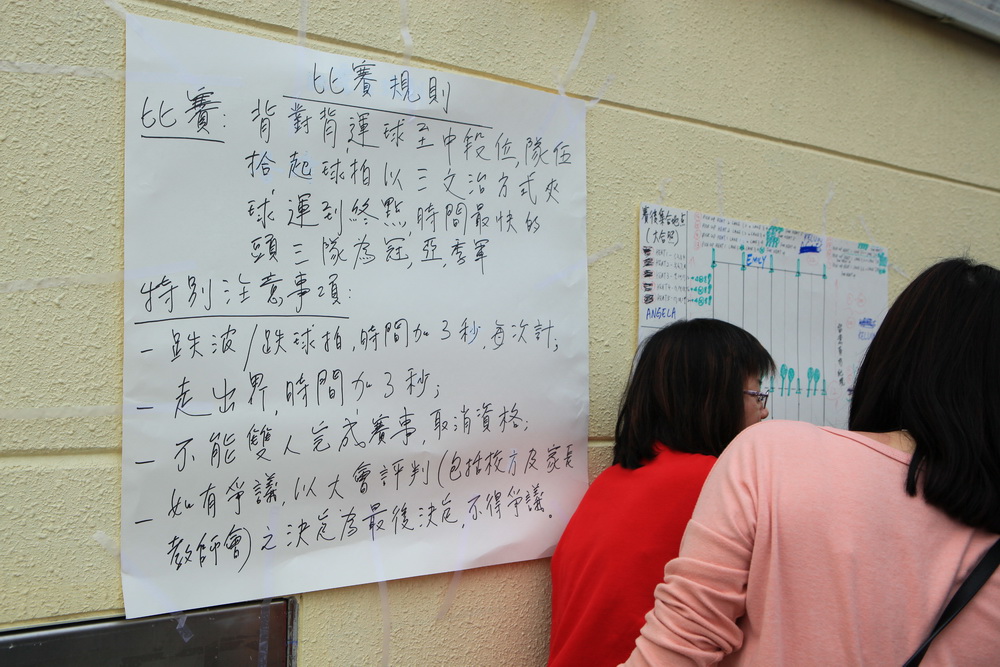 比賽規則
比賽: 背對背運球至中段位,隊伍
拾起球拍以三文治方式夾
球運到終點,時間最快的
頭三隊為冠,亞,季軍
特別注意事項:
- 跌波/跌球拍,時間加3秒,每次計;
- 走出界,時間加3秒;
- 不能雙人完成賽事,取消資格;
- 如有爭議,以大會評判(包括校方及家長
教師會)之決定為最後決定,不得爭議。
賽後集合地点
(大合照)
EMILY
ANGELA